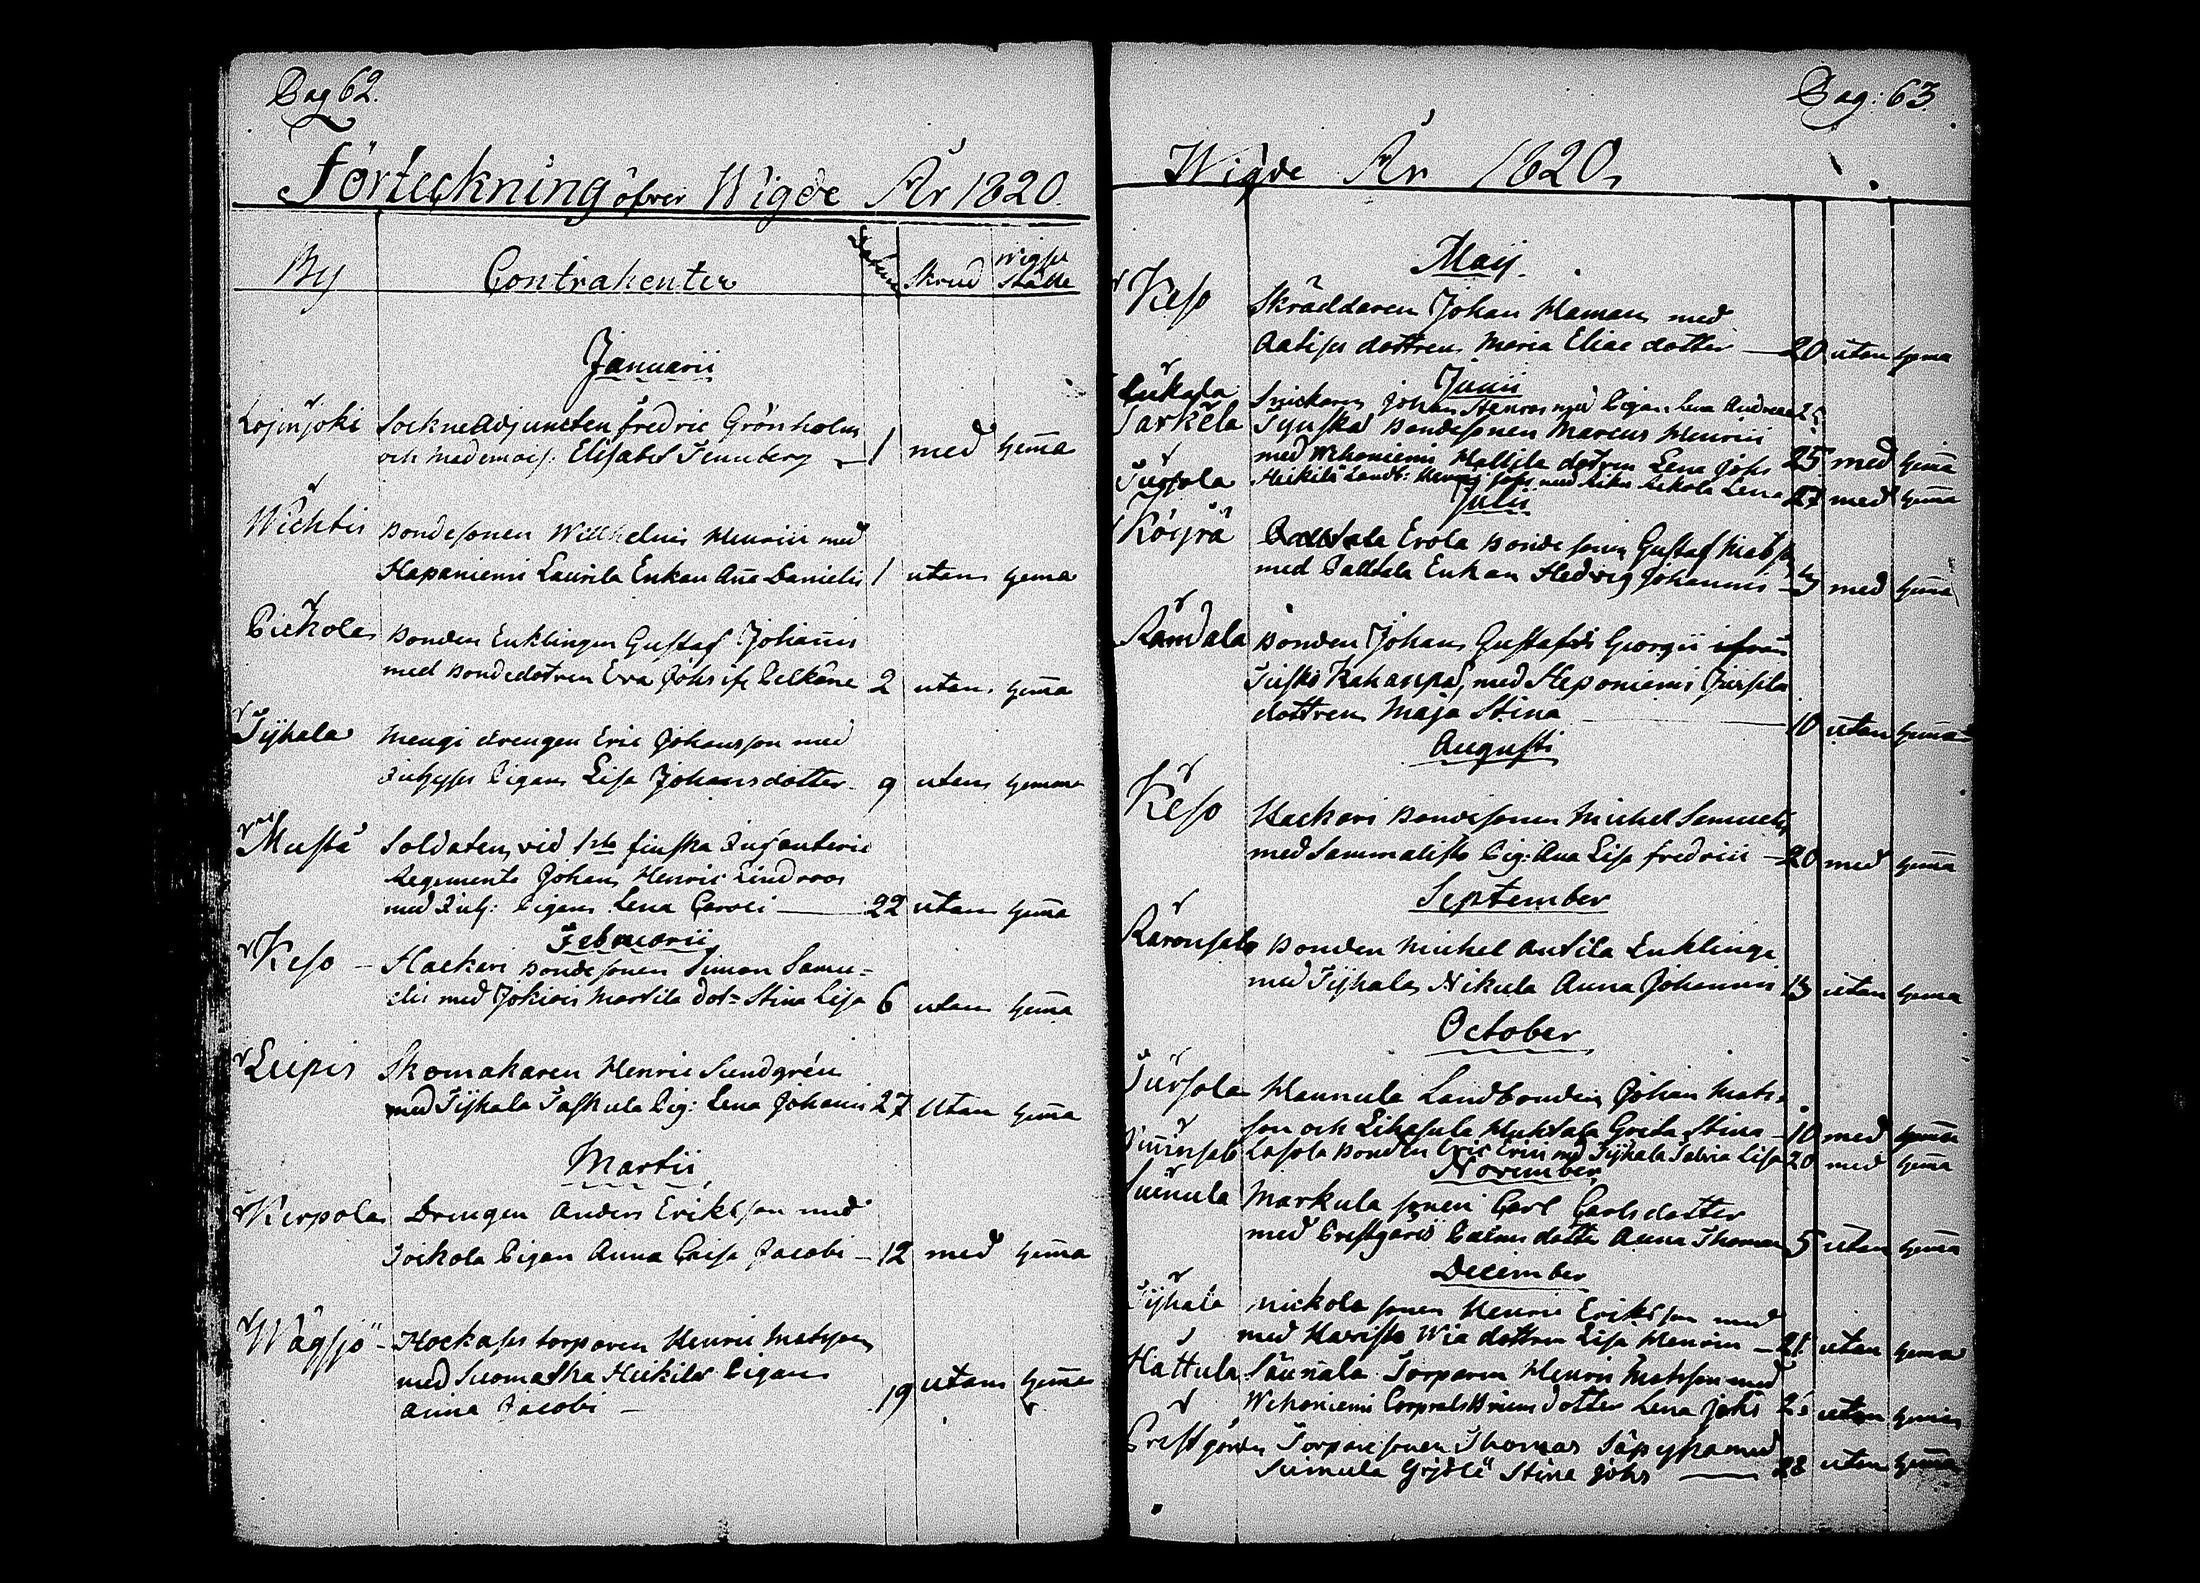 Pag 62.
Förteckning öfver Wigde År 1820.
By Contrahenter Datum Skrud Wigsel Ställe
Januarii
Lojnjoki Sockneadjuncten Fredric Grönholm
och Mademois: Elisabet Tennberg 1 med hema
Wichtis Bondesonen Willhelm Henrici med
Hapaniemi Laurila Enkan Aña Danielis 1 utan hema
Pickola Bonden Enklingen Gustaf Johannis
med Bondedotren Eva Johs if Pelkäne 2 utan hema
Tyhala drengen Eric Johansson med
Pigan Lisa Johansdotter 9 utan hemma
Mustå Soldaten vid 1sta finska Infanterie
Regemente Johan Henric Lindroos
med Pigan Lena Caroli 22 utan hema
Februarii
Keso Hackari Bondesonen Simon Samu=
elis med Jokiois Martila dot= Stina Lisa 6 utan hema
Leipis Skomakaren Henric Sundgrén
med Tyhala Taskula Pig: Lena Johanis 27 utan hema
Martii
Kerpola Drengen Anders Eriksson med
Pigan Anna Caisa Jacobi 12 med hema
Wågsjö torparen Henric Matsson
med Heikilä Pigan
Anna Jacobi 19 utan hema
Pag: 63
Wigde År 1820
Maij
Keso Skräddaren Johan Haman med
dottren Maria Eliae dotter 20 utan hema
Junii
Snickaren Johan med Pigan Lena Andreae
Sarkela Bondesonen Marcus Henrici
med Wehoniemi dotren Lena Johs 25 med hema
Tursola Heikilä Landb: Lena 27 med hema
Julii
Köyrä Erola Bondesonen Gustaf Mats
med Enkan Hedvig Johannis 4 med hema
Randala Bonden Johan Gustafss Georgii ifrån
med Heponiemi
dottren Maja Stina 10 utan hema
Augusti
Keso Hackari Bondesonen Michel Samuelis
med Sammalisto Pig: Ana Lisa Fredrici 20 med hema
September
Raronsalo Bonden Michel Antila Enklinge
med Tyhala Nikula Anna Johannis 13 utan hema
October
Tursola Hannula Landbonden Johan Mats=
son och Greta Stina 10 med hema
Lasola Bonden Eric med Tyhala Lisa 20 med hema
November
Suinula Markula sonen Carl Carlsdotter
med Prestgårds dotter Anna Thomae 5 utan hema
December
Tyhala Mickola sonen Henric Eriksson med
med dottren Lisa Henrici 21 utan hema
Hattula Torparen Henric Matsson med
Wehoniemi Corprals dotter Lena Johs utan hema
Prestgården Torparesonen Thomas med
Suinula Stina Johs 28 utan hema